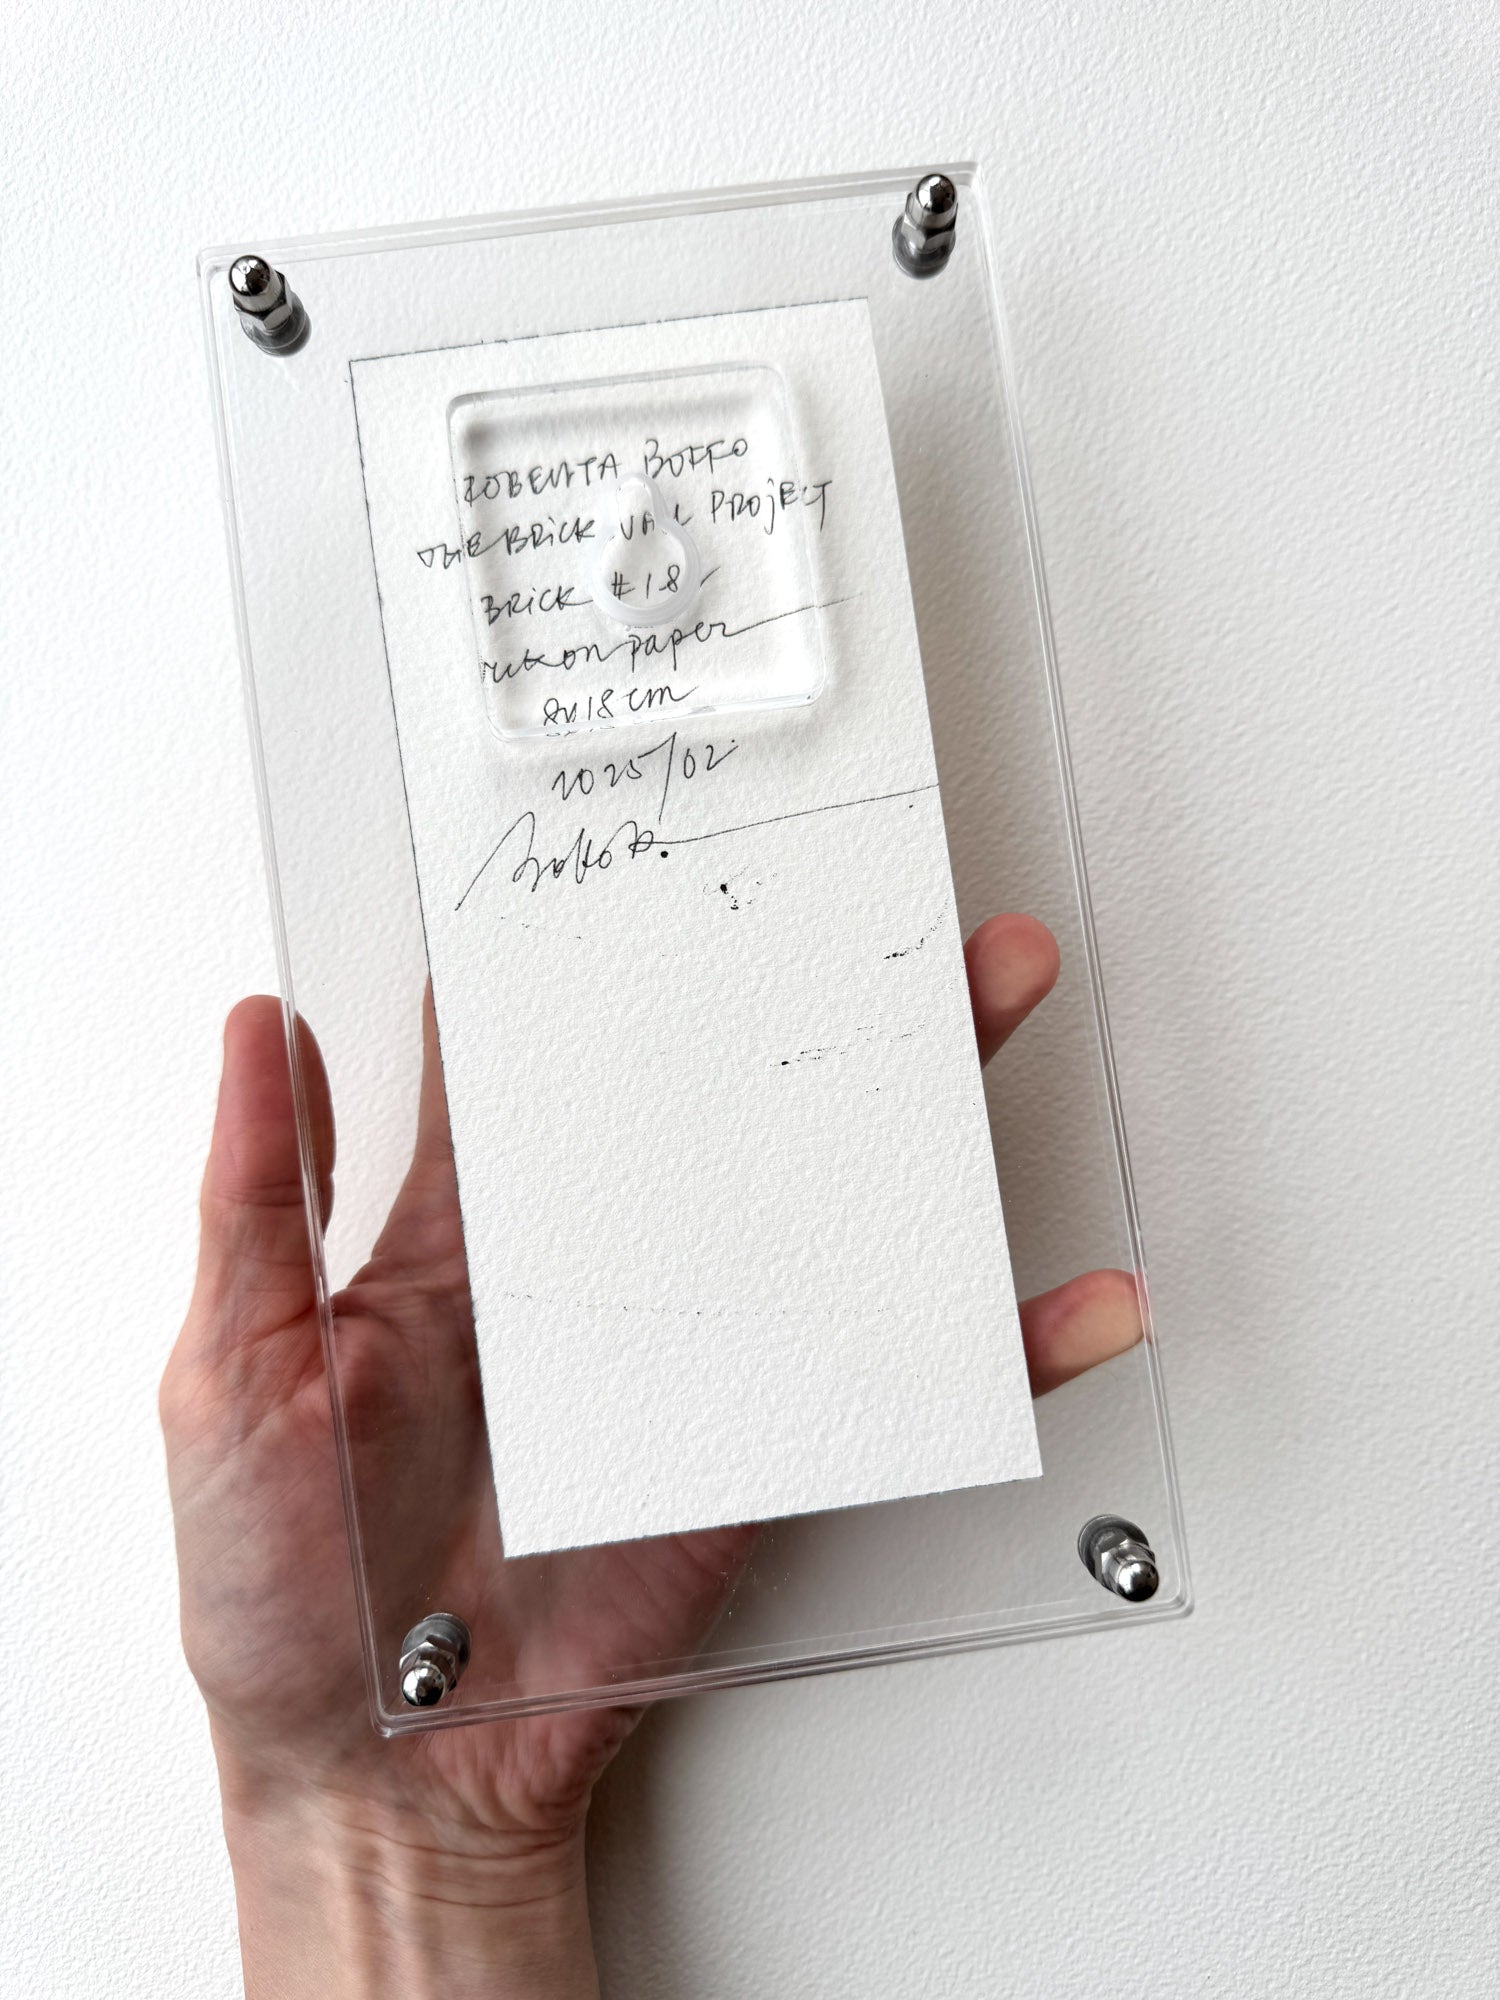 ROBERTA BOFFO
THE BRICK WALL PROJECT
BRICK #18
ink on paper
8x18 cm
2025/02